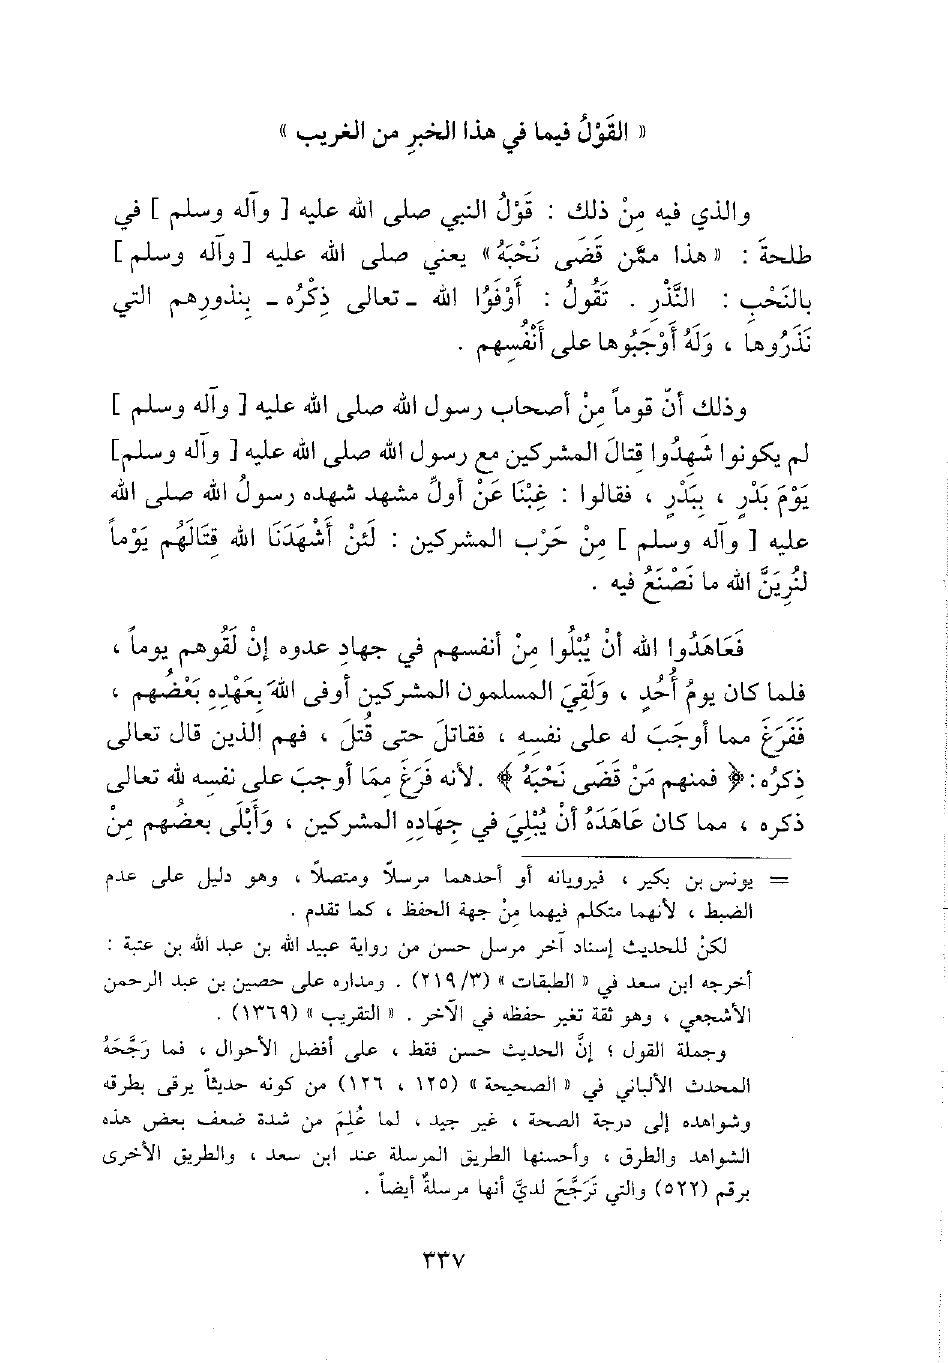 « القَوْلُ فيما في هذا الخبرِ من الغريب »
والذي فيه مِنْ ذلك : قَوْلُ النبي صلى الله عليه [ وآله وسلم ] في
طلحةَ : « هذا ممَّن قَضَى نَحْبَهُ » يعني صلى الله عليه [ وآله وسلم ]
بالنَحْبِ : النَّذْرِ . تَقُولُ : أَوْفَوُا الله ـ تعالى ذِكْرُه ـ بنذورهم التي
نَذَرُوها ، وَلَهُ أَوْجَبُوها على أَنْفُسِهم .
وذلك أنّ قوماً مِنْ أصحاب رسول الله صلى الله عليه [ وآله وسلم ]
لم يكونوا شَهِدُوا قِتالَ المشركين مع رسول الله صلى الله عليه [ وآله وسلم]
يَوْمَ بَدْرٍ ، بِبَدْرٍ ، فقالوا : غِبْنَا عَنْ أولِ مشهد شهده رسولُ الله صلى الله
عليه [ وآله وسلم ] مِنْ حَرْب المشركين : لَئِنْ أَشْهَدَنَا الله قِتَالَهُم يَوْماً
لنُرِيَنَّ الله ما نَصْنَعُ فيه .
فَعَاهَدُوا الله أنْ يُبْلُوا مِنْ أنفسهم في جهادِ عدوه إنْ لَقُوهم يوماً ،
فلما كان يومُ أُحُدٍ ، وَلَقِيَ المسلمون المشركين أوفى اللهَ بِعَهْدِهِ بَعْضُهم ،
فَفَرَغَ مما أوجَبَ له على نفسِهِ ، فقاتلَ حتى قُتلَ ، فهم الذين قال تعالى
ذِكرُه : ﴿ فمنهم مَنْ قَضَى نَحْبَهُ ﴾ . لأنه فَرَغَ ممّا أوجبَ على نفسه لله تعالى
ذكره ، مما كان عَاهَدَهُ أنْ يُبْلِيَ في جِهَادِهِ المشركين ، وَأَبْلَى بعضُهم مِنْ
= يونس بن بكير ، فيرويانه أو أحدهما مرسلاً ومتصلاً ، وهو دليل على عدم
الضبط ، لأنهما متكلم فيهما مِنْ جهة الحفظ ، كما تقدم .
لكنْ للحديث إسناد آخر مرسل حسن من رواية عبيد الله بن عبد الله بن عتبة :
أخرجه ابن سعد في « الطبقات » (٢١٩/٣) . ومداره على حصين بن عبد الرحمن
الأشجعي ، وهو ثقة تغير حفظه في الآخر . « التقريب » (١٣٦٩) .
وجملة القول ؛ إنَّ الحديث حسن فقط ، على أفضل الأحوال ، فما رَجَّحَهُ
المحدث الألباني في « الصحيحة » (١٢٥ ، ١٢٦) من كونه حديثاً يرقى بطرقه
وشواهده إلى درجة الصحة ، غير جيد ، لما عُلِمَ من شدة ضعف بعض هذه
الشواهد والطرق ، وأحسنها الطريق المرسلة عند ابن سعد ، والطريق الأخرى
برقم (٥٢٢) والتي تَرَجَّحَ لديَّ أنها مرسلةٌ أيضاً .
٣٣٧